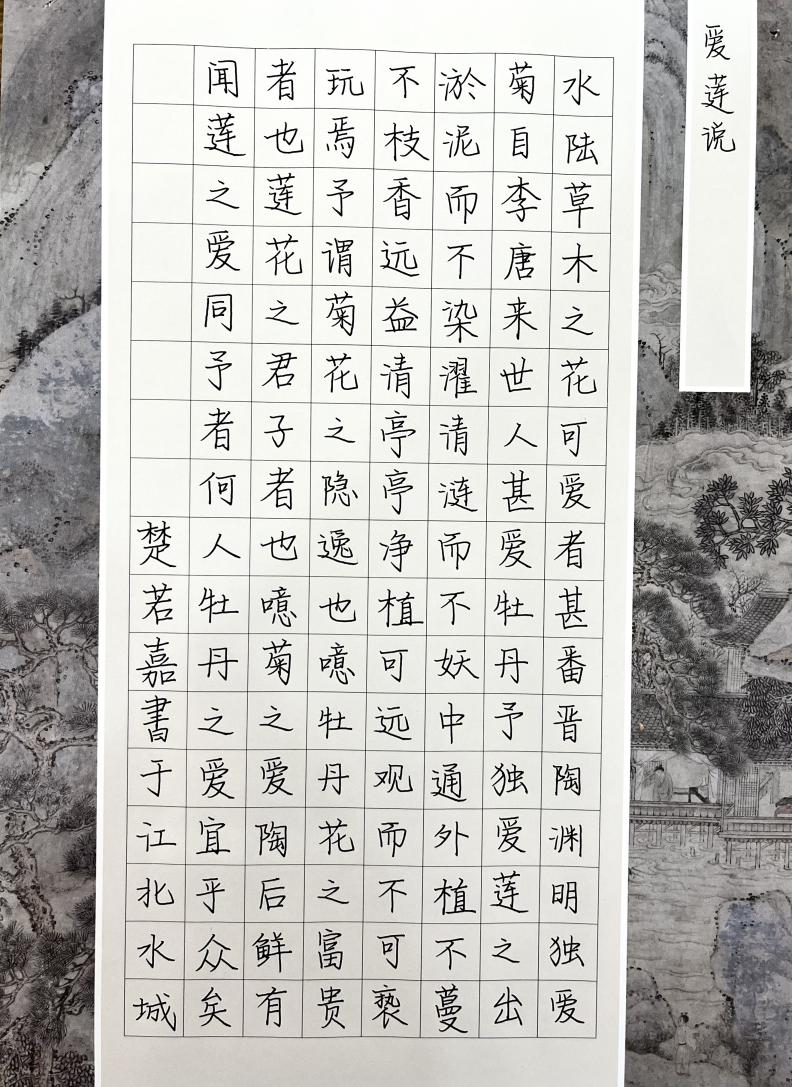 爱莲说
水陆草木之花可爱者甚番晋陶渊明独爱
菊自李唐来世人甚爱牡丹予独爱莲之出
淤泥而不染濯清涟而不妖中通外植不蔓
不枝香远益清亭亭净植可远观而不可亵
玩焉予谓菊花之隐逸也噫牡丹花之富贵
者也莲花之君子者也噫菊之爱陶后鲜有
闻莲之爱同予者何人牡丹之爱宜乎众矣
楚若嘉書于江北水城